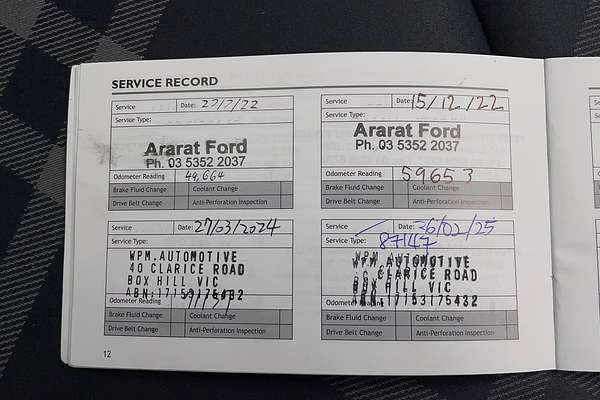 SERVICE RECORD
Service Date: 27/7/22
Service Type:
Ararat Ford
Ph. 03 5352 2037
Odometer Reading 49,664
Brake Fluid Change Coolant Change
Drive Belt Change Anti-Perforation Inspection
Service Date: 15/12/22
Service Type:
Ararat Ford
Ph. 03 5352 2037
Odometer Reading 59653
Brake Fluid Change Coolant Change
Drive Belt Change Anti-Perforation Inspection
Service Date: 27/03/2024
Service Type:
WPM.AUTOMOTIVE
40 CLARICE ROAD
BOX HILL VIC
ABN:17153175432
Odometer Reading
Brake Fluid Change Coolant Change
Drive Belt Change Anti-Perforation Inspection
Service Date: 26/02/25
Service Type: 87147
WPM AUTOMOTIVE
CLARICE ROAD
BOX HILL VIC
ABN:17153175432
Brake Fluid Change Coolant Change
Drive Belt Change Anti-Perforation Inspection
12